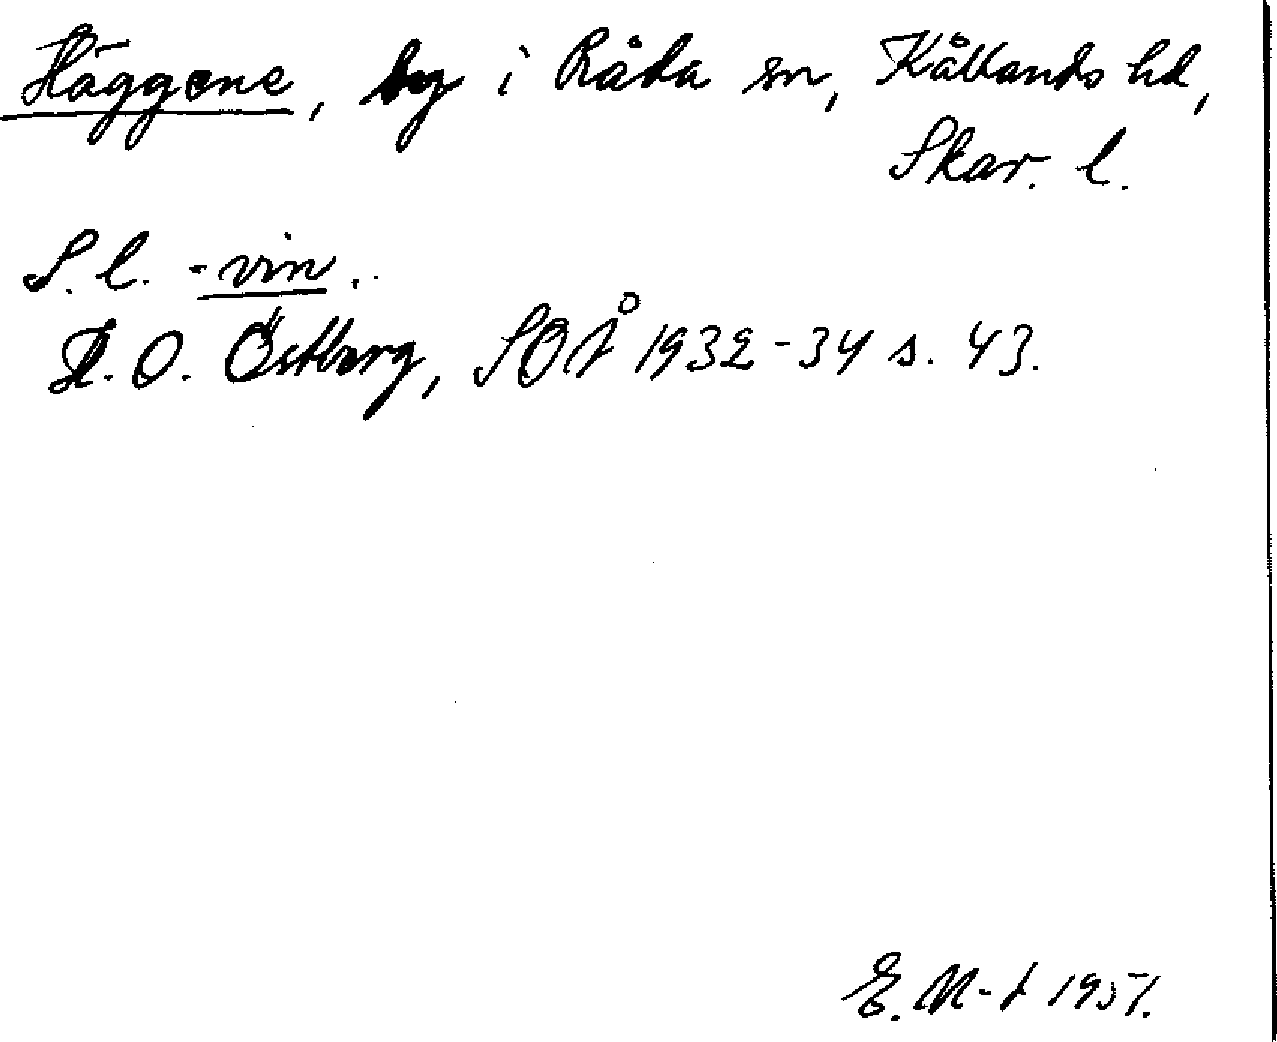 Häggene, by i Råda sn, Kållands hd,
Skar. l.
S. l. -vin.
H. O. Östberg, SOÅ 1932-34 s. 43.
E. M-t 1951.